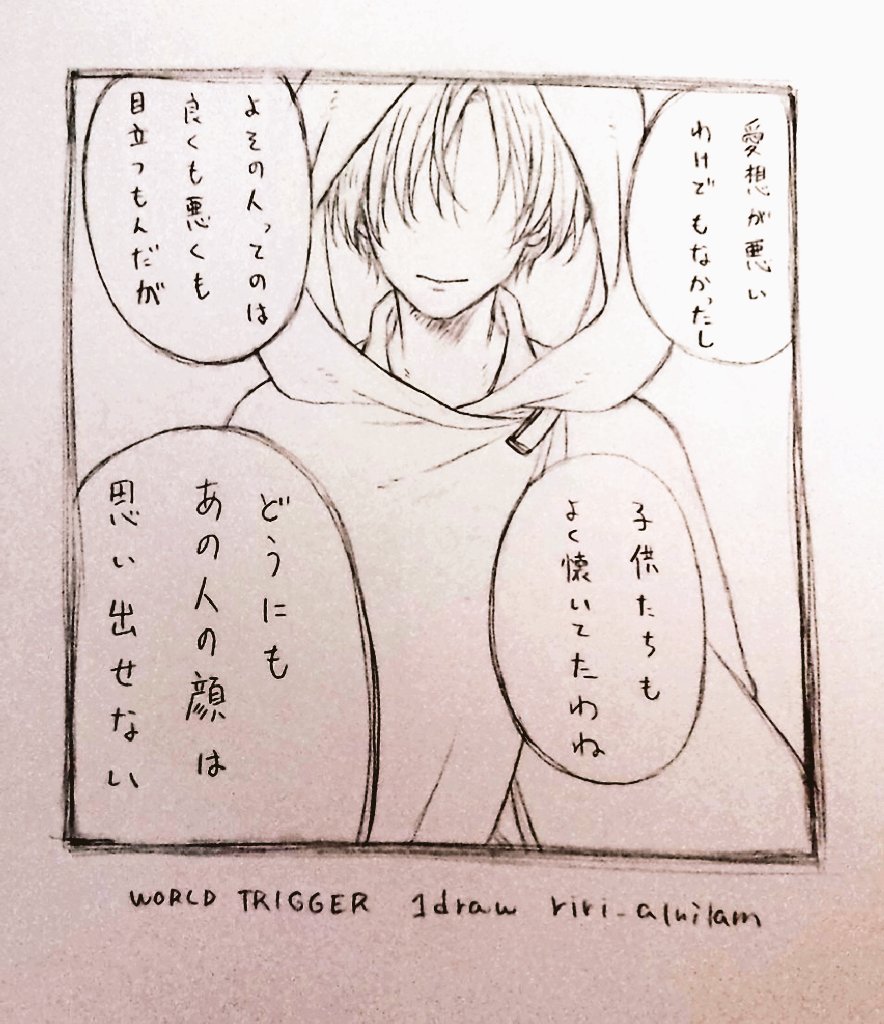 愛想が悪い
わけでもなかったし
よその人ってのは
良くも悪くも
目立つもんだが
子供たちも
よく懐いてたわね
どうにも
あの人の顔は
思い出せない
WORLD TRIGGER 1draw riri_alnilam